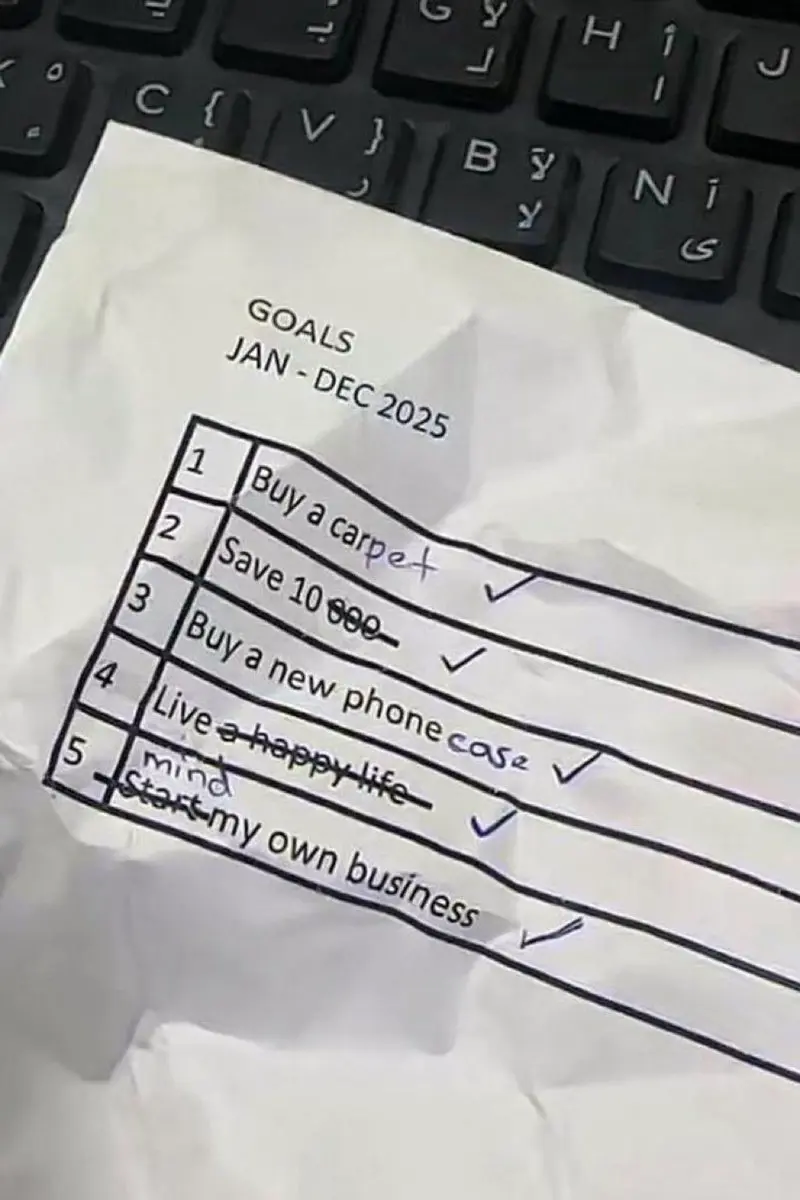 G لا ل
H أ ا
J
C {
V } ر
B لآ لا
N آ ى
GOALS
JAN - DEC 2025
1 Buy a carpet ✓
2 Save 10 000 ✓
3 Buy a new phone case ✓
4 Live a happy life ✓
mind
5 Start my own business ✓